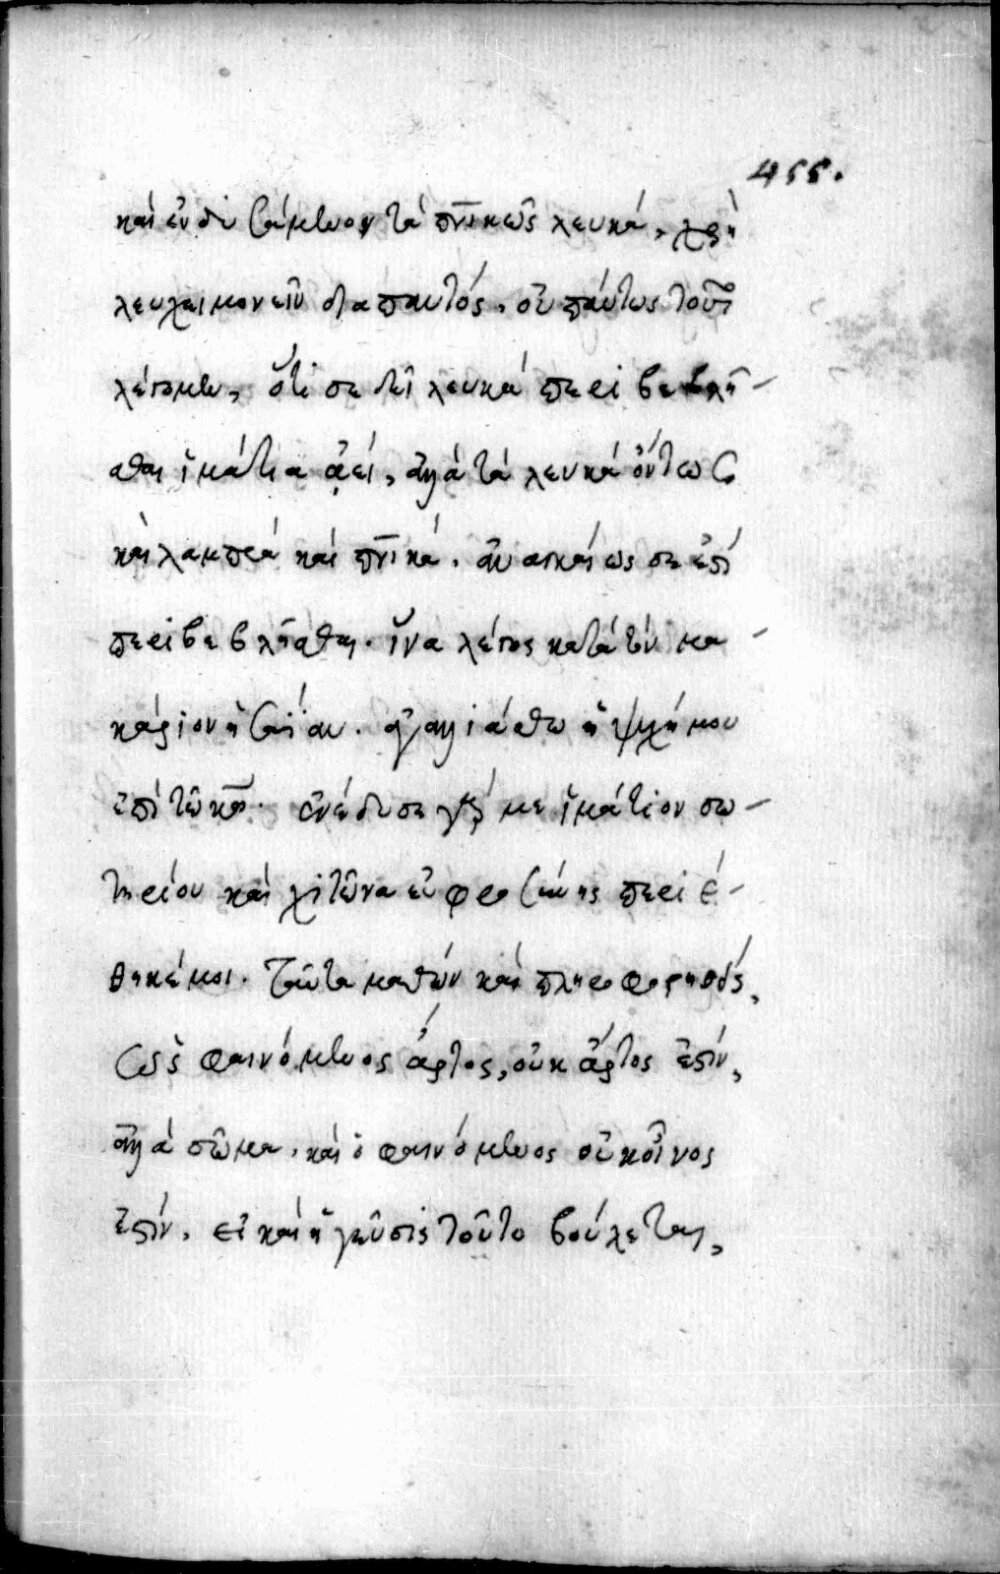 455.
καὶ ἐνδυσάμενον τὰ πνικῶς λευκὰ, χρὴ
λευχειμονεῖν διαπαντός. οὐ πάντως τοῦτο
λέγομεν, ὅτι σε δεῖ λευκὰ περιβεβλῆ-
σθαι ἱμάτια ἀεί, ἀλλὰ τὰ λευκὰ ὄντως
καὶ λαμπρὰ καὶ πνικά. ἀναγκαίως σε ἐστὶ
περιβεβλῆσθαι. ἵνα λέγῃς κατὰ τὸν μα-
κάριον ἡσαΐαν. ἀγαλλιάσθω ἡ ψυχή μου
ἐπὶ τῷ κῳ. ἐνέδυσε γάρ με ἱμάτιον σω-
τηρίου καὶ χιτῶνα εὐφροσύνης περιέ-
θηκέ μοι. ταῦτα μαθὼν καὶ πληροφορηθείς,
ὡς ὁ φαινόμενος ἄρτος, οὐκ ἄρτος ἐστίν,
ἀλλὰ σῶμα. καὶ ὁ φαινόμενος οὐκ οἶνος
ἐστίν. εἰ καὶ ἡ γεῦσις τοῦτο βούλεται,